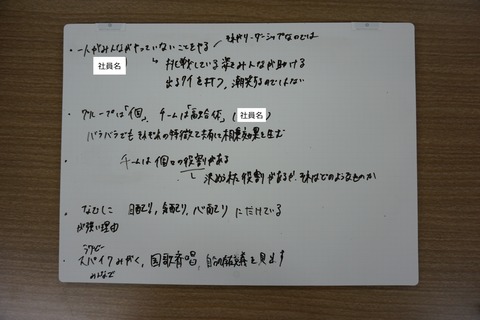 ・一人がみんながやっていないことをやる それがリーダーシップなのでは
社員名
挑戦している姿をみんなが助ける
出るクイを打つ、潮笑うのではない
グループは「個」、チームは「融合体」(社員名)
バラバラでもそれぞれの特徴で共有に相乗効果を生む
チームは個々の役割がある
決められた役割があるが、それはどのようなものか
・なでしこ 目配り、気配り、心配り にたけている
が強い理由
ラグビー
スパイクみがく、国歌斉唱、
みんなで